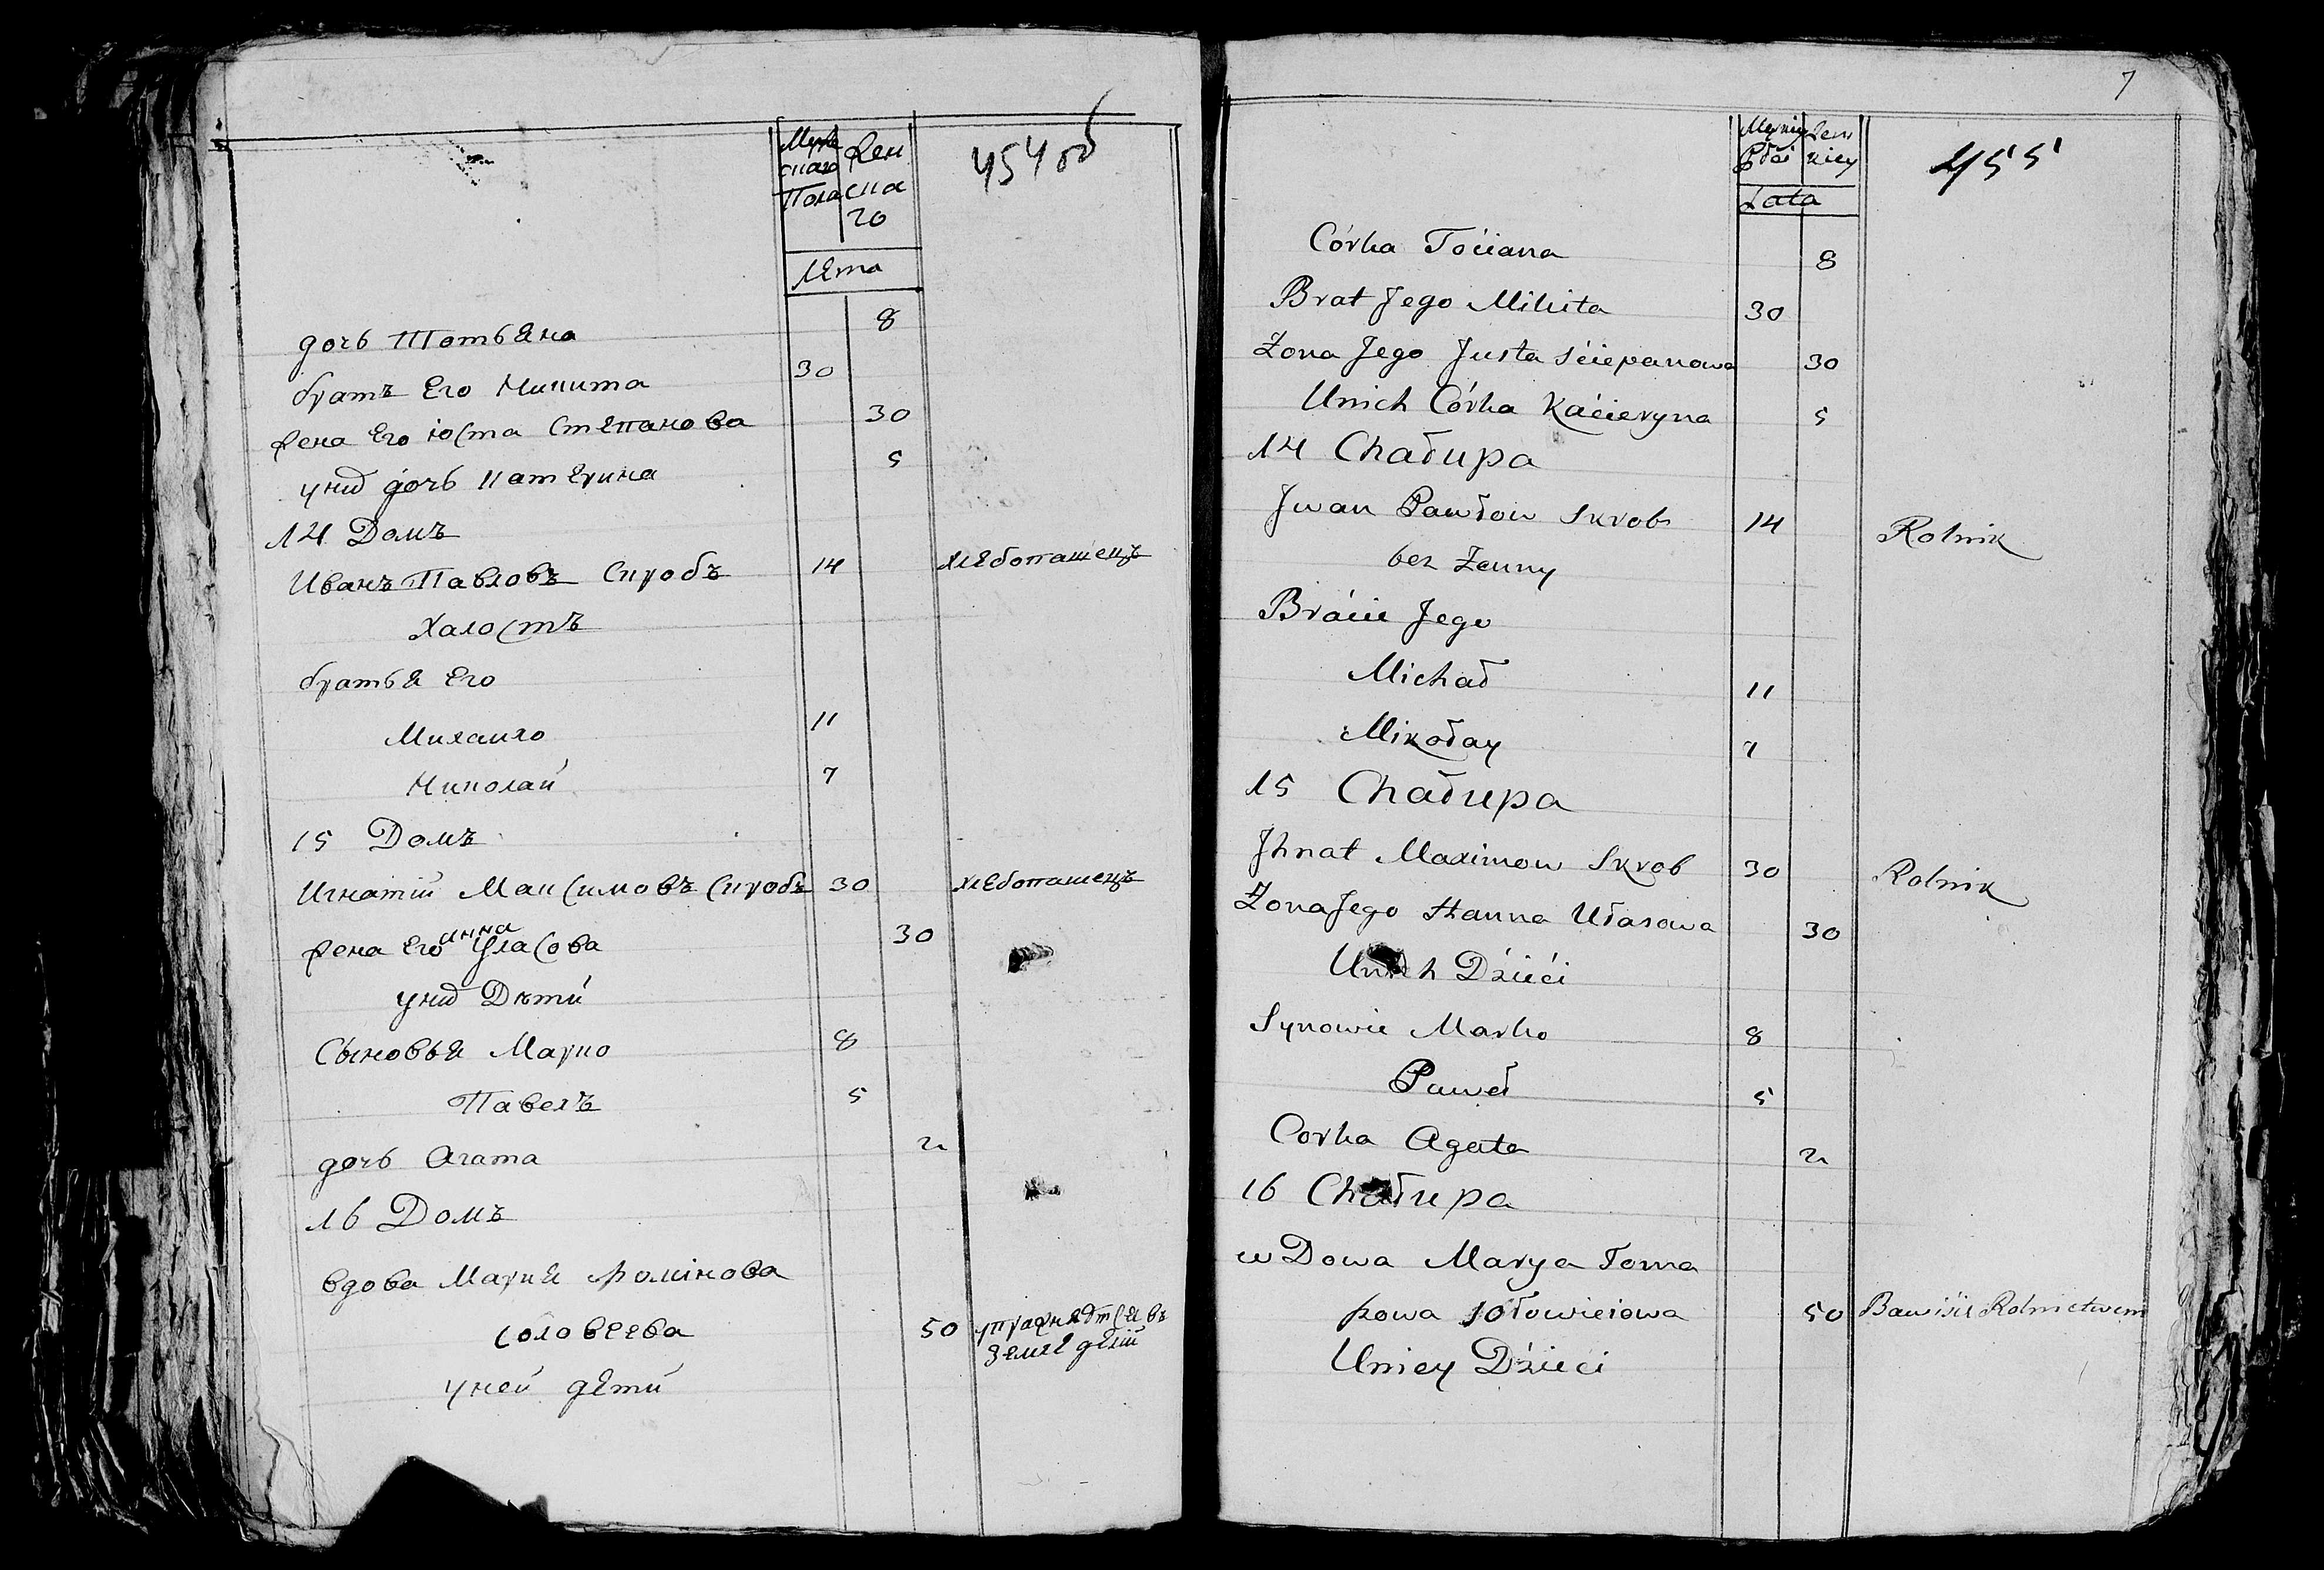 Муже
скаго
Пола
Жен
ска
го
Лета
454 об
дочь Татьяна 8
братъ Его Никита 30
Жена Его Юста Степанова 30
уних дочь Катерина 5
14 Домъ
Иванъ Павловъ Скробъ 14 хлебопашецъ
Халостъ
братья Его
Михайло 11
Николай 7
15 Домъ
Игнатій Максимовъ Скробъ 30 хлебопашецъ
анна
Жена Его Уласова 30
уних Дѣти
Сыновья Марко 8
Павелъ 5
дочь Агата 2
16 Домъ
вдова Мария Фомінова
Соловеева 50 упражняется въ
земледеліи
уней дети
7
Męzkiey
Płci
Żen
kiey
Lata
455
Córka Tóciana 8
Brat Jego Mikita 30
Żona Jego Justa Sciepanowa 30
Unich Córka Kácieryna 5
14 Chałupa
Jwan Pawłow Skrob 14 Rolnik
bez Żenny
Brácie Jego
Michał 11
Mikołay 7
15 Chałupa
Jhnat Maximow Skrob 30 Rolnik
Żona Jego Hanna Ułasowa 30
Unich Dźieci
Synowie Marko 8
Paweł 5
Corka Agata 2
16 Chałupa
wDowa Marya Toma
powa Sołowieiowa 50 Bawisie Rolnictwem
Uniey Dźieci